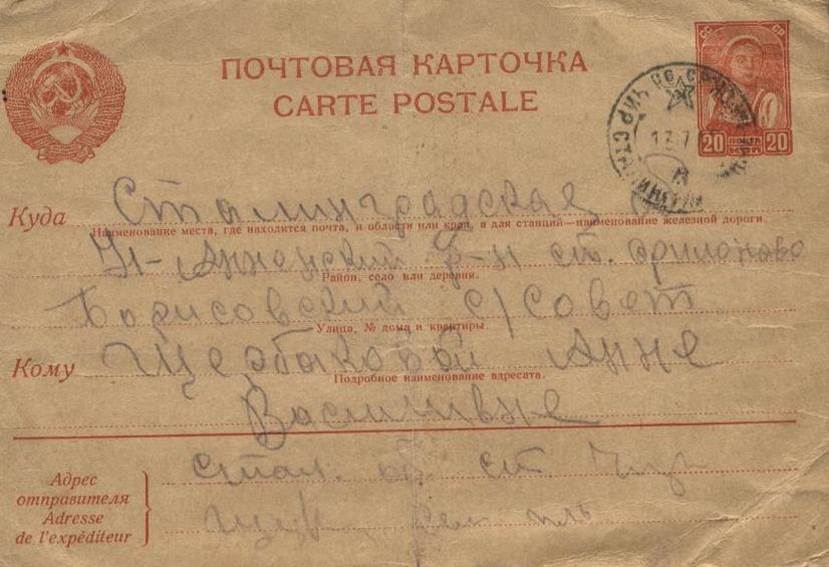 ПОЧТОВАЯ КАРТОЧКА
CARTE POSTALE
СС СР
20 ПОЧТА 20
17 7
Куда Сталинградская
Наименование места, где находится почта, и области или края, а для станций—наименование железной дороги.
Н-Анненский р-н ст.
Район, село или деревня.
Борисовский с/совет
Улица, № дома и квартиры.
Кому Щербаковой Анне
Подробное наименование адресата.
Василивне
Адрес отправителя
Adresse de l'expéditeur
Стал. об ст